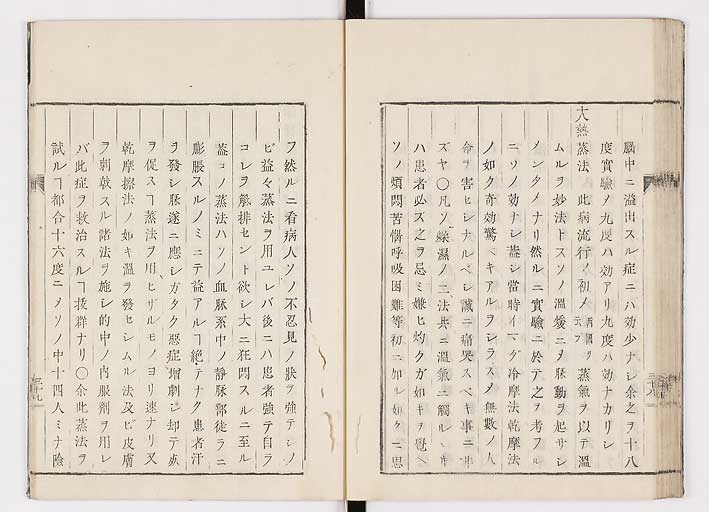 腦中ニ溢出スル症ニハ効少ナシ余之ヲ十八
度實驗メ九度ハ効アリ九度ハ効ナカリシ
大熱蒸法 此病流行ノ初メ ヲ蒸氣ヲ以テ溫
ムルヲ妙法トスソノ溫煖ニメ脉動ヲ起サシ
メンタメナリ然ルニ實驗ニ於テ之ヲ考フル
ニソノ効ナシ蓋シ當時イマダ冷摩法乾摩法
ノ如ク奇効驚ベキアルヲシラスメ無數ノ人
命ヲ害セシナルベシ誠ニ痛哭スベキ事ニ
ズヤ〇凡ソ燥濕ノ二法共ニ溫氣ニ觸ル
ハ患者必ズ之ヲ忌ミ嫌ヒ灼クガ如キヲ覺ヘ
ソノ煩悶苦惱呼吸困難等初ニ如ク思
フ然ルニ看病人ソノ不忍見ノ狀ヲ強テシノ
ビ益々蒸法ヲ用ユレバ後ニハ患者強テ自ラ
コレヲ觧排セント欲シ大ニ狂悶スルニ至ル
蓋コノ蒸法ハソノ血脉系中ノ靜脉部徒ラニ
膨脹スルノミニテ益アルヿ絶テナク患者汗
ヲ發シ脉遂ニ應シガタク惡症增劇シ却テ死
ヲ促スヿ蒸法ヲ用ヒザルモノヨリ速ナリ又
乾摩擦法ノ如キ溫ヲ發セシムル法及ビ皮膚
ヲ刺戟スル諸法ヲ施シ的中ノ内服劑ヲ用レ
バ此症ヲ救治スルヿ拔群ナリ〇余此蒸法ヲ
試ルヿ都合十六度ニメソノ中十四人ミナ險